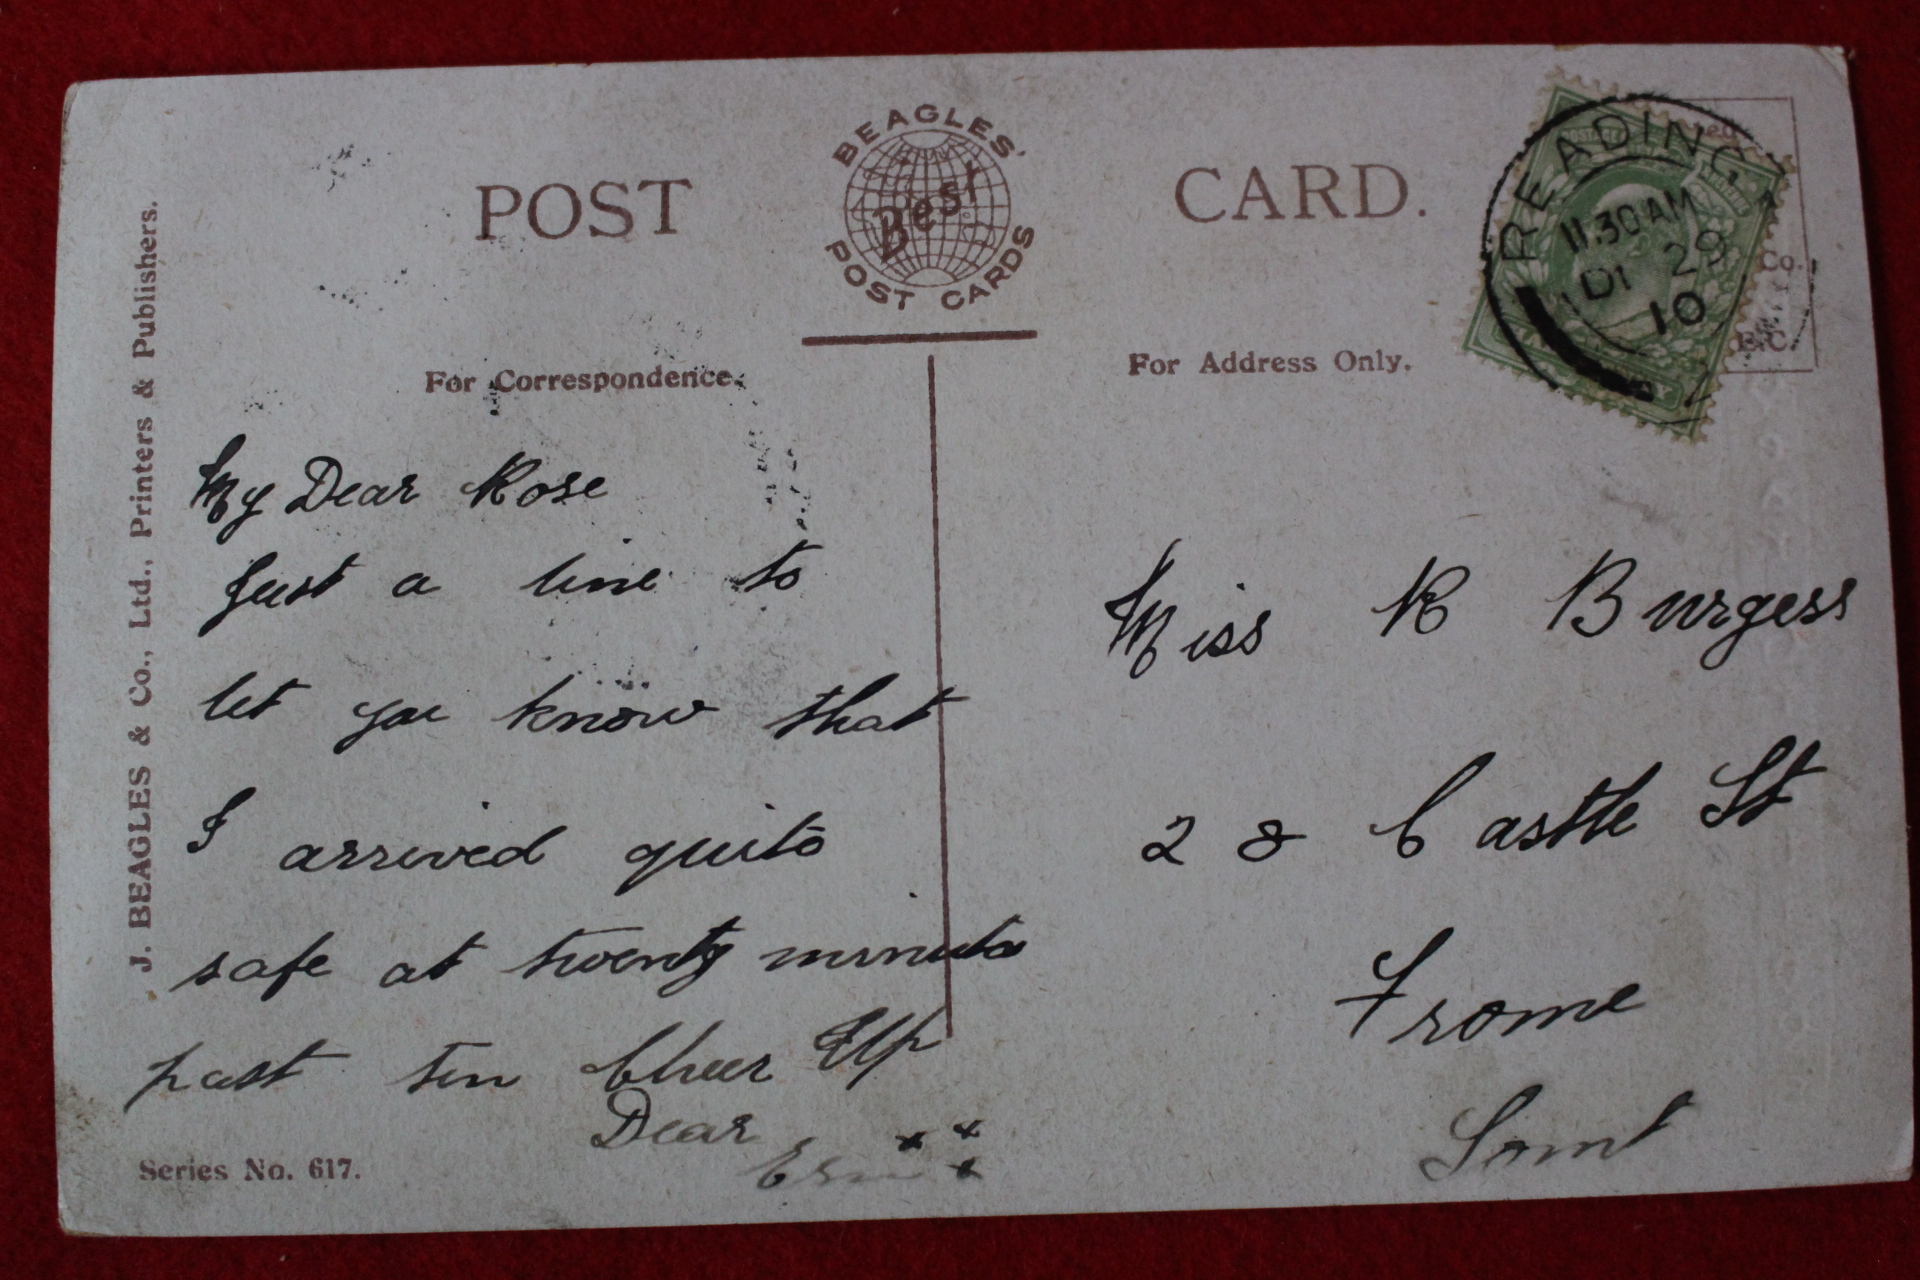 POST CARD.
BEAGLES'
Best
POST CARDS
For Correspondence.
For Address Only.
READING
11.30 AM
DE 29
10
Co.
E.C.
J. BEAGLES & Co., Ltd., Printers & Publishers.
My Dear Rose
Just a line to
let you know that
I arrived quite
safe at twenty minute
past ten Cheer Up
Dear
x x
x
Series No. 617.
Miss R Burgess
28 Castle St
Frome
Somt